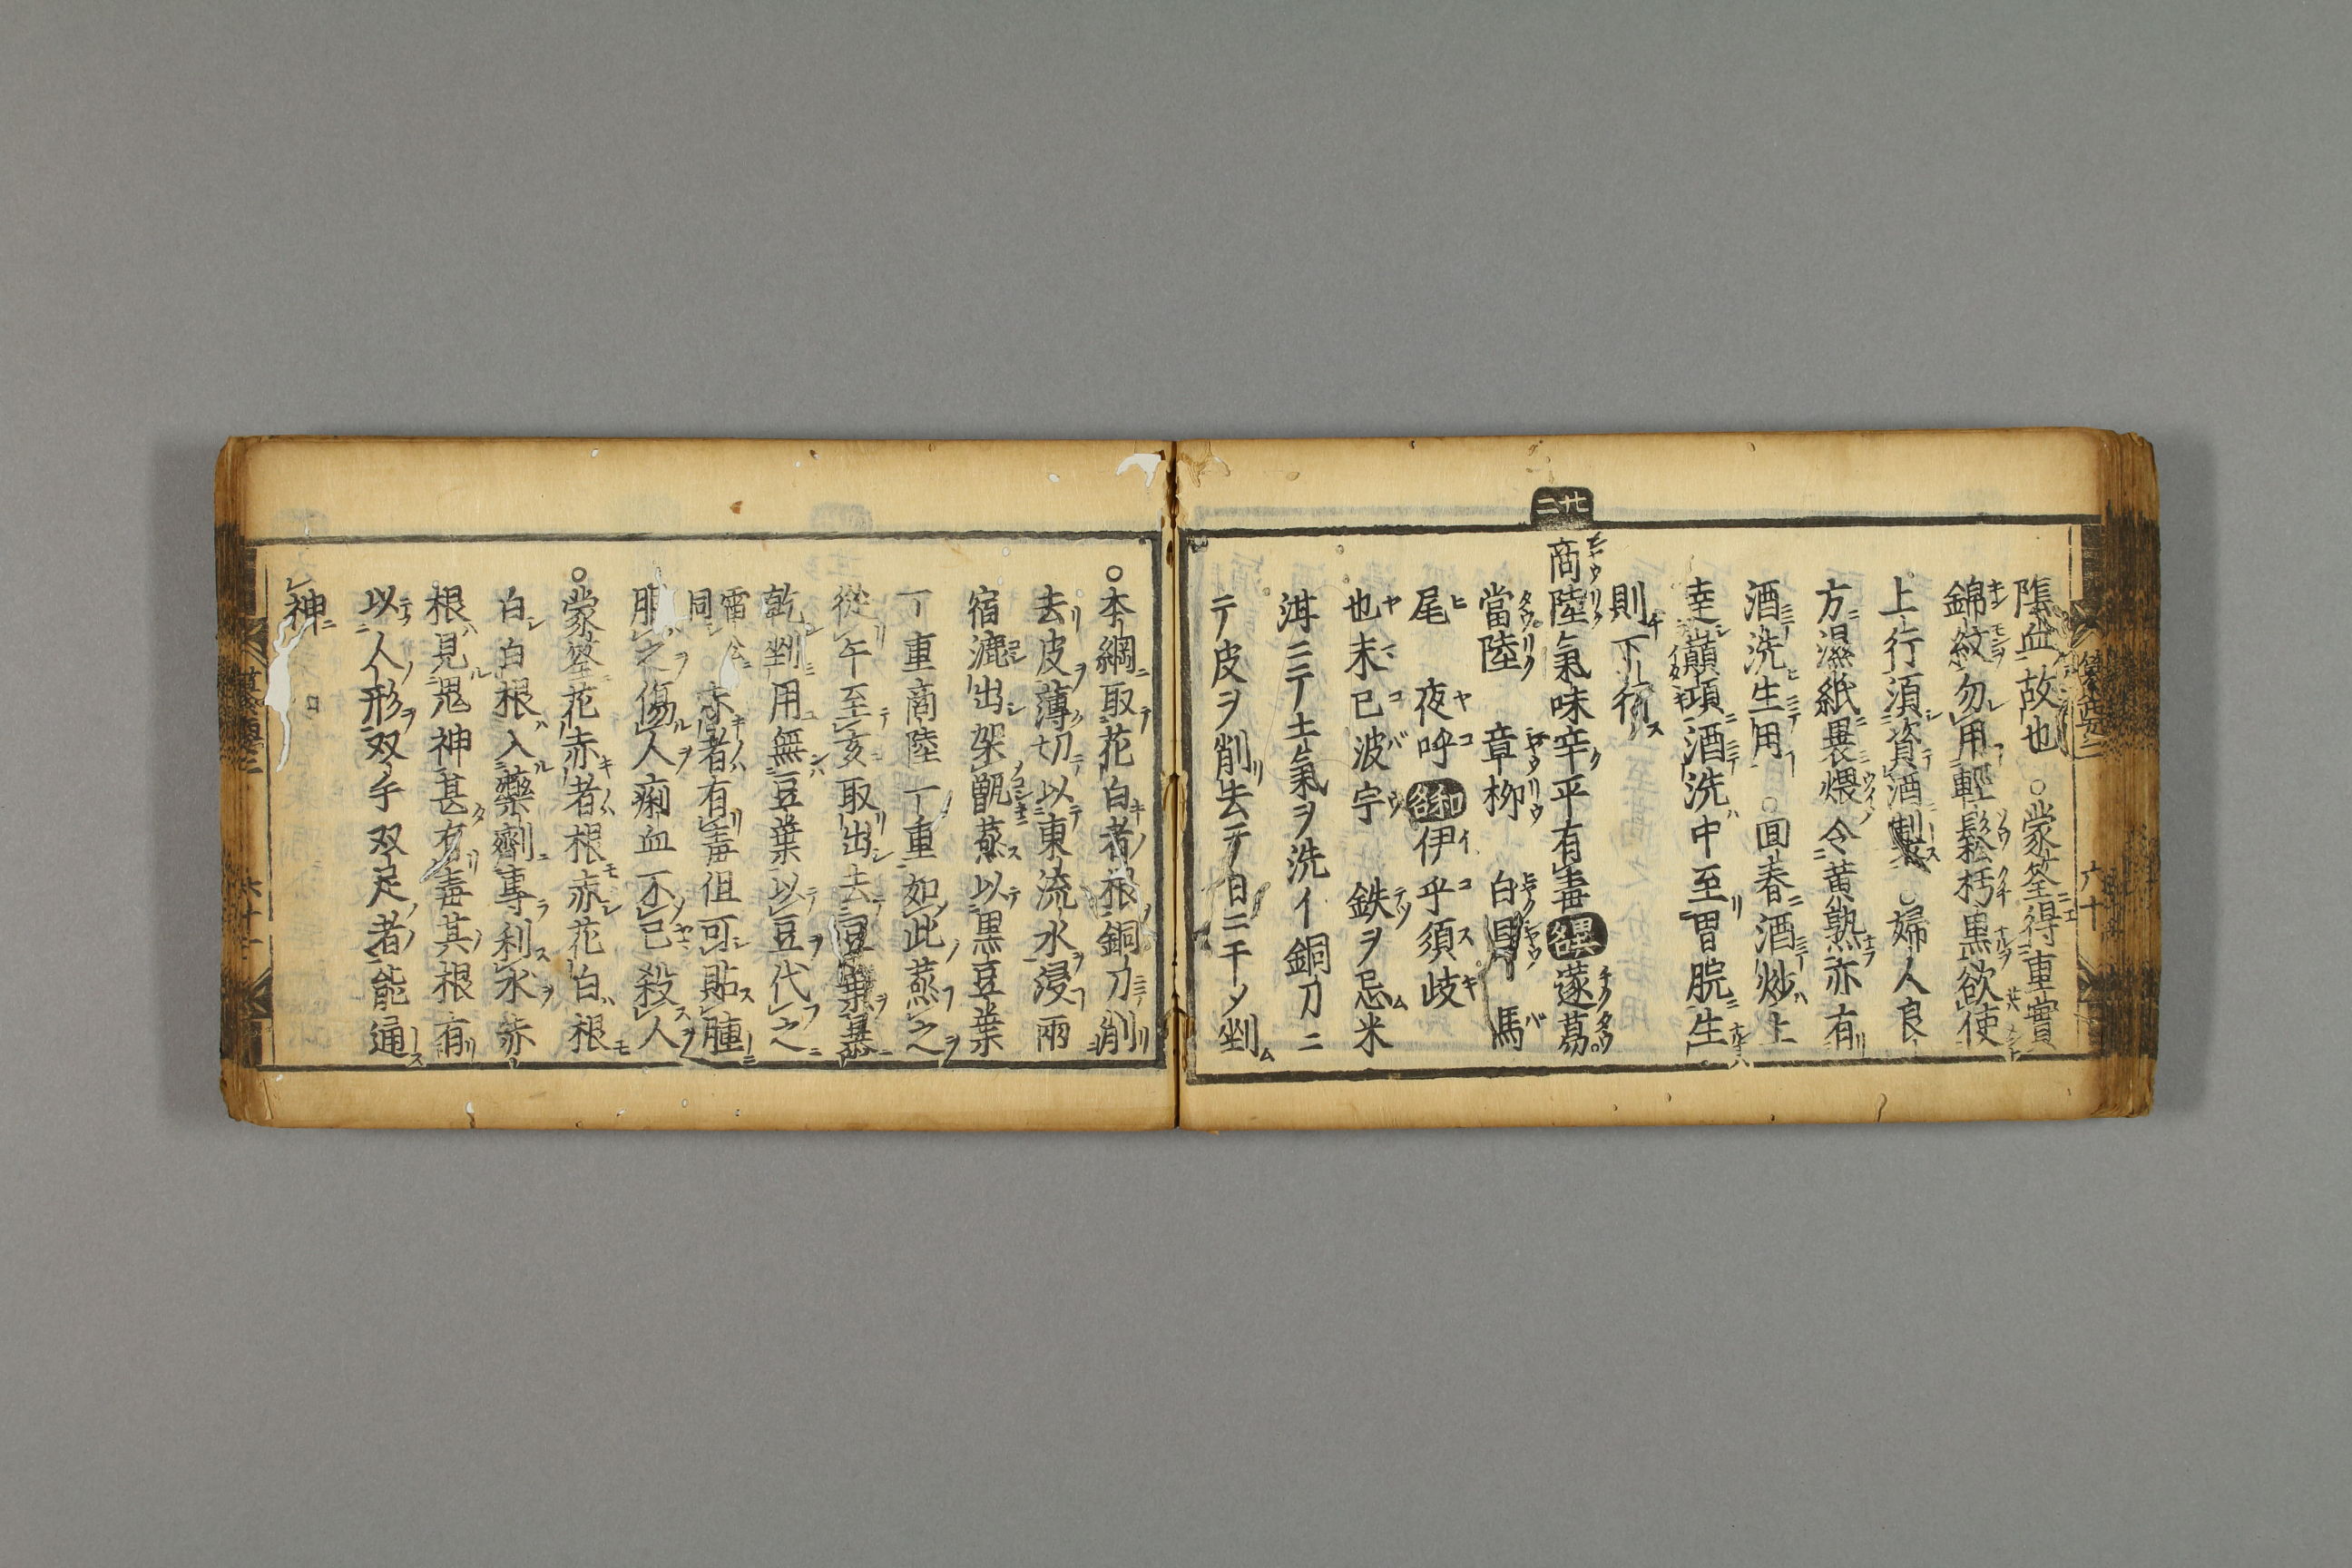 隂血故也○蒙筌得重實
錦紋勿用輕鬆朽黒欲使
上行湏資酒製○婦人良
方濕紙褁煨令黄熟亦有
酒洗生用○回春酒炒上
達巓頂酒洗中至胃脘生
則下行
廿二
商陸氣味辛平有毒異名蓫葛
當陸 章柳 白昌 馬
尾 夜呼 和名伊乎須岐
也末己波宇 鉄ヲ忌米
泔ニテ土氣ヲ洗イ銅刀ニ
テ皮ヲ削去テ日ニ干メ剉
○本綱取花白者根銅刀削
去皮薄切以東流水浸兩
宿漉出架甑蒸以黒豆葉
一重商陸一重如此蒸之
從午至亥取出去豆葉暴
乾剉用無豆葉以豆代之
雷公同 赤者有毒但可貼腫
服之傷人痢血不已殺人
○蒙筌花赤者根赤花白根
白白根入藥劑專利水赤
根見鬼神甚有毒其根有
以人形双手双足者能通
神
六十
六十一